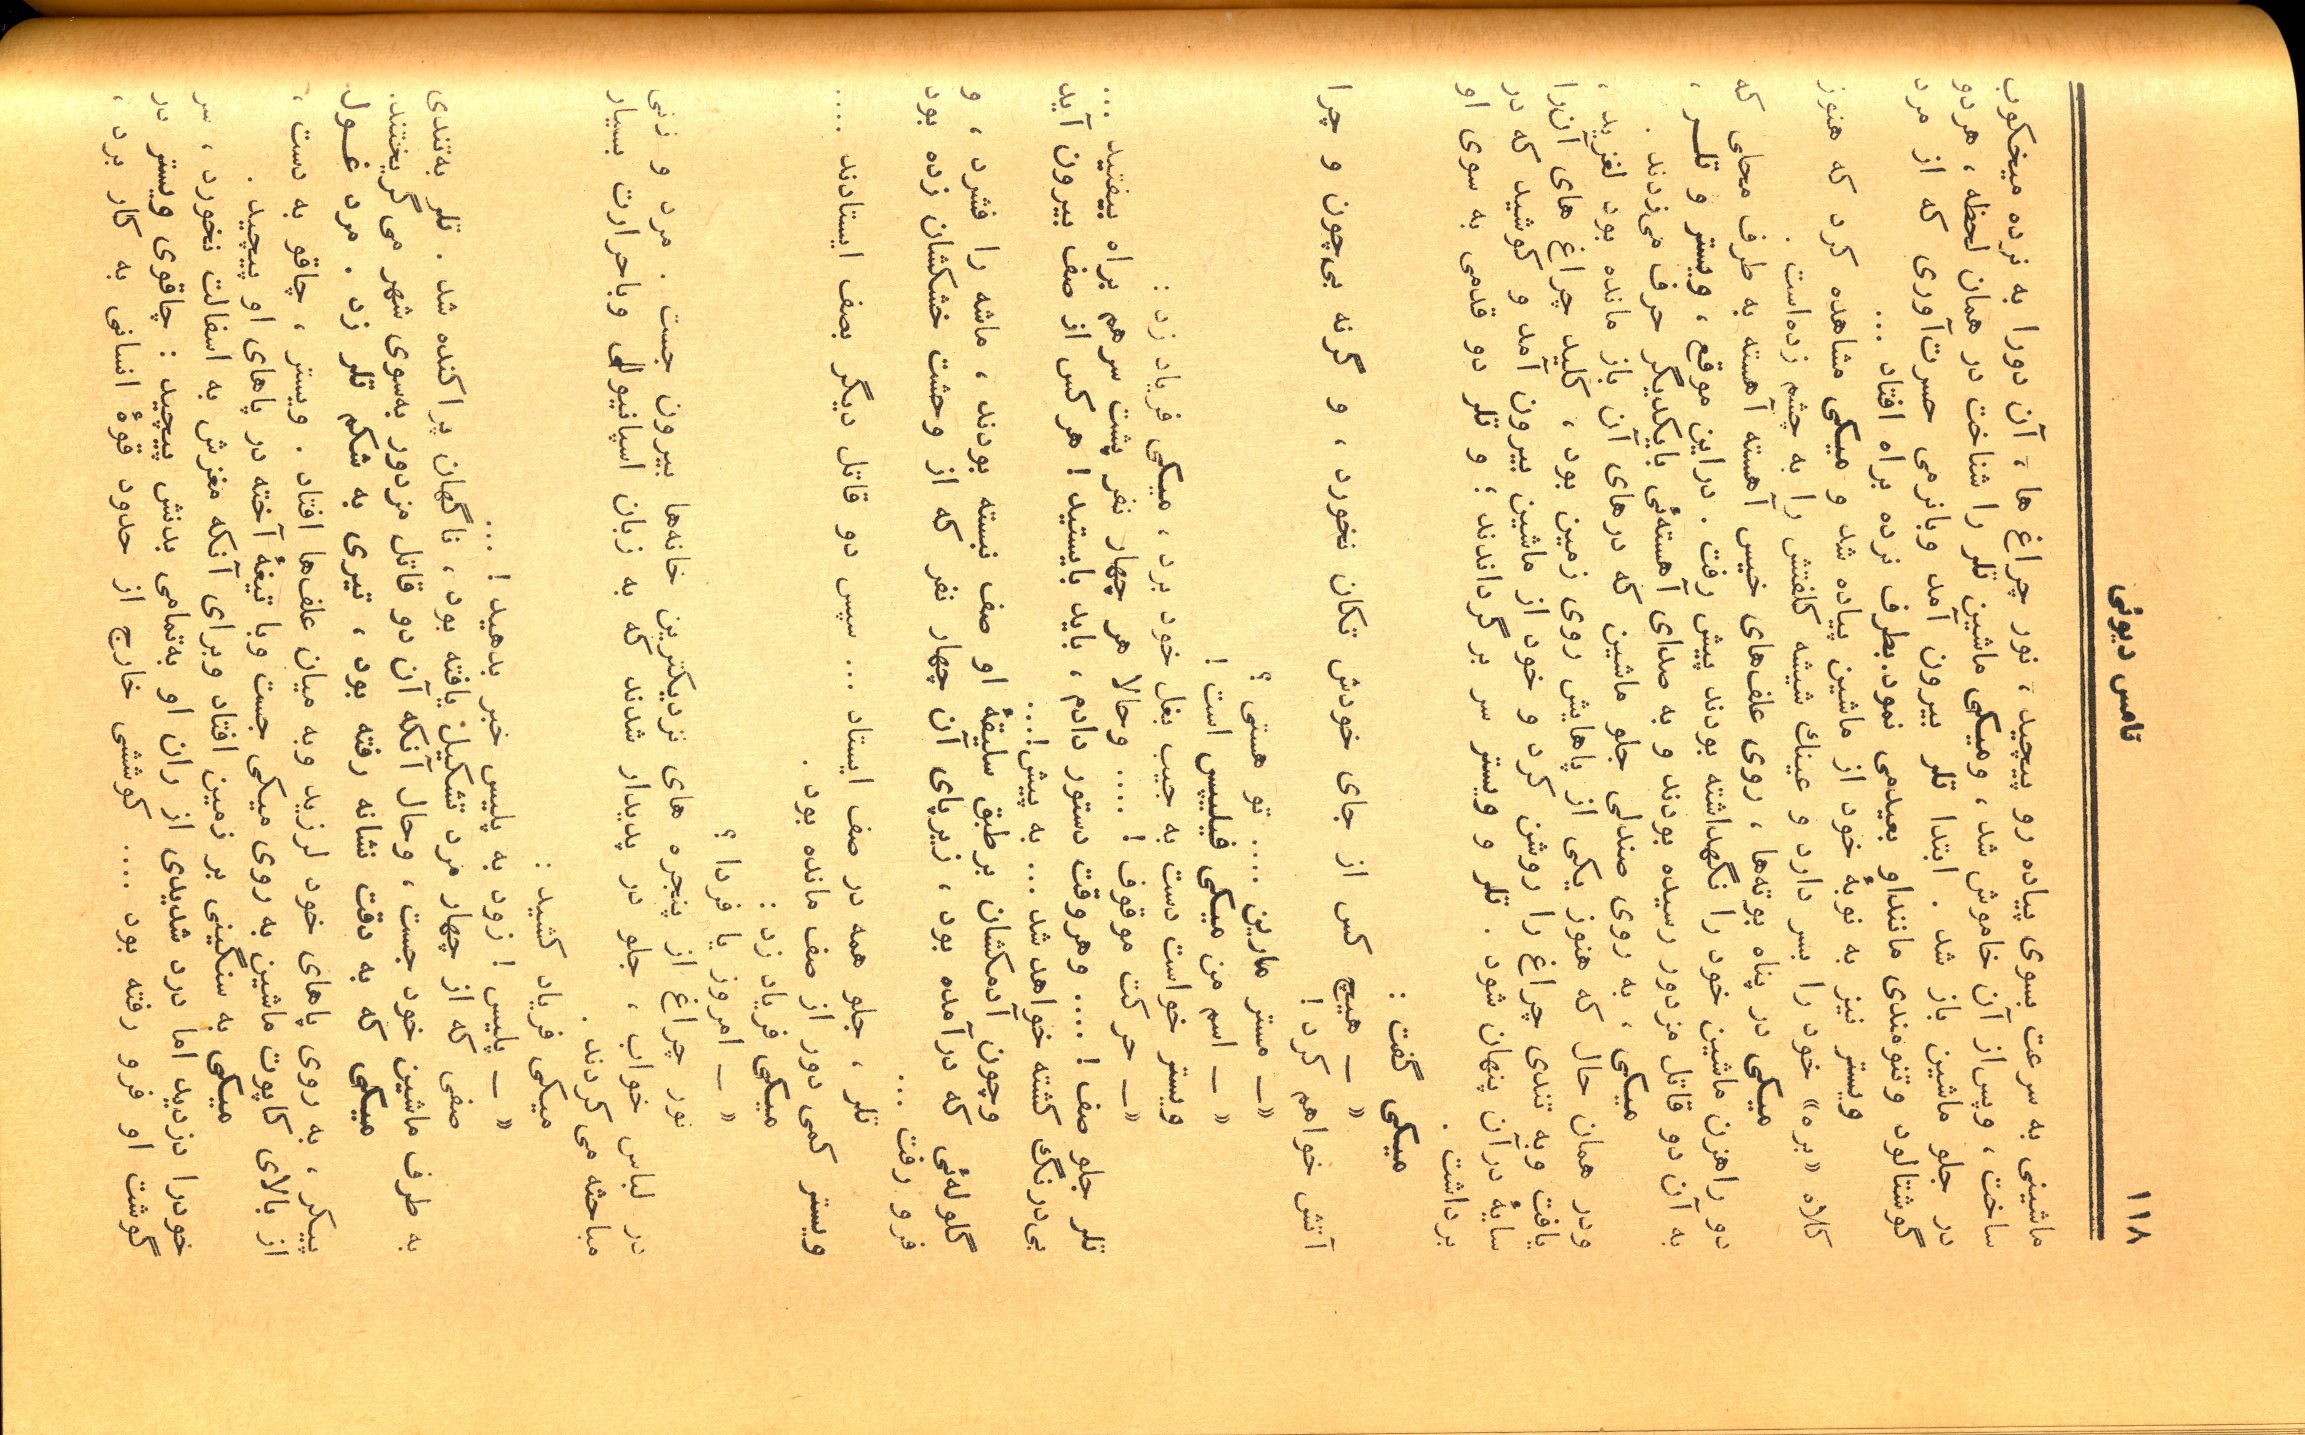 ۱۱۸
تامس دیوئی
ماشینی به سرعت بسوی پیاده رو پیچید، نور چراغ ها، آن دورا به نرده میخکوب
ساخت، وپس‌از آن خاموش شد، ومیکی ماشین تلر را شناخت در همان لحظه، هردو
در جلو ماشین باز شد. ابتدا تلر بیرون آمد وبانرمی حسرت‌آوری که از مرد
گوشتالود وتنومندی ماننداو بعیدمی نمود.بطرف نرده براه افتاد ...
ویستر نیز به نوبهٔ خود از ماشین پیاده شد و میکی مشاهده کرد که هنوز
کلاه «بره» خود را بسر دارد و عینك شیشه کلفتش را به چشم زده‌است.
میکی در پناه بوته‌ها، روی علف‌های خیس آهسته آهسته به طرف محلی که
دو راهزن ماشین خود را نگهداشته بودند پیش رفت. دراین موقع، ویستر و تلـر،
به آن دو قاتل مزدور رسیده بودند و به صدای آهسته‌ئی بایکدیگر حرف می‌زدند.
میکی، به روی صندلی جلو ماشین که درهای آن باز مانده بود لغزید،
ودر همان حال که هنوز یکی از پاهایش روی زمین بود، کلید چراغ های آن‌را
یافت وبه تندی چراغ را روشن کرد و خود از ماشین بیرون آمد و کوشید که در
سایهٔ درآن پنهان شود. تلر و ویستر سر برگرداندند؛ و تلر دو قدمی به سوی او
برداشت.
میکی گفت:
«ـــ هیچ کس از جای خودش تکان نخورد، و گرنه بی‌چون و چرا
آتش خواهم کرد!
«ـــ مستر مارین .... تو هستی؟
«ـــ اسم من میکی فیلیپس است!
ویستر خواست دست به جیب بغل خود برد، میکی فریاد زد:
«ـــ حرکت موقوف! .... وحالا هر چهار نفر پشت سرهم براه بیفتید ...
تلر جلو صف! .... وهروقت دستور دادم، باید بایستید! هرکس از صف بیرون آید
بی‌درنگ کشته خواهد شد ... به پیش!...
وچون آدمکشان برطبق سلیقهٔ او صف نبسته بودند، ماشه را فشرد، و
گلوله‌ئی که درآمده بود، زیرپای آن چهار نفر که از وحشت خشکشان زده بود
فرو رفت ...
تلر، جلو همه در صف ایستاد ... سپس دو قاتل دیگر بصف ایستادند ....
ویستر کمی دور از صف مانده بود.
میکی فریاد زد:
«ـــ امروز یا فردا؟
نور چراغ از پنجره های نزدیکترین خانه‌ها بیرون جست. مرد و زنی
در لباس خواب، جلو در پدیدار شدند که به زبان اسپانیولی وباحرارت بسیار
مباحثه می‌کردند.
میکی فریاد کشید:
«ـــ پلیس! زود به پلیس خبر بدهید! ...
صفی که از چهار مرد تشکیل یافته بود، ناگهان پراکنده شد. تلر به‌تندی
به طرف ماشین خود جست، وحال آنکه آن دو قاتل مزدور به‌سوی شهر می‌گریختند.
میکی که به دقت نشانه رفته بود، تیری به شکم تلر زد. مرد غـول
پیکر، به روی پاهای خود لرزید وبه میان علف‌ها افتاد. ویستر، چاقو به دست،
از بالای کاپوت ماشین به روی میکی جست وبا تیغهٔ آخته در پاهای او پیچید.
میکی به سنگینی بر زمین افتاد وبرای آنکه مغزش به اسفالت نخورد، سر
خودرا دزدید اما درد شدیدی از ران او به‌تمامی بدنش پیچید: چاقوی ویستر در
گوشت او فرو رفته بود .... کوششی خارج از حدود قوهٔ انسانی به کار برد،